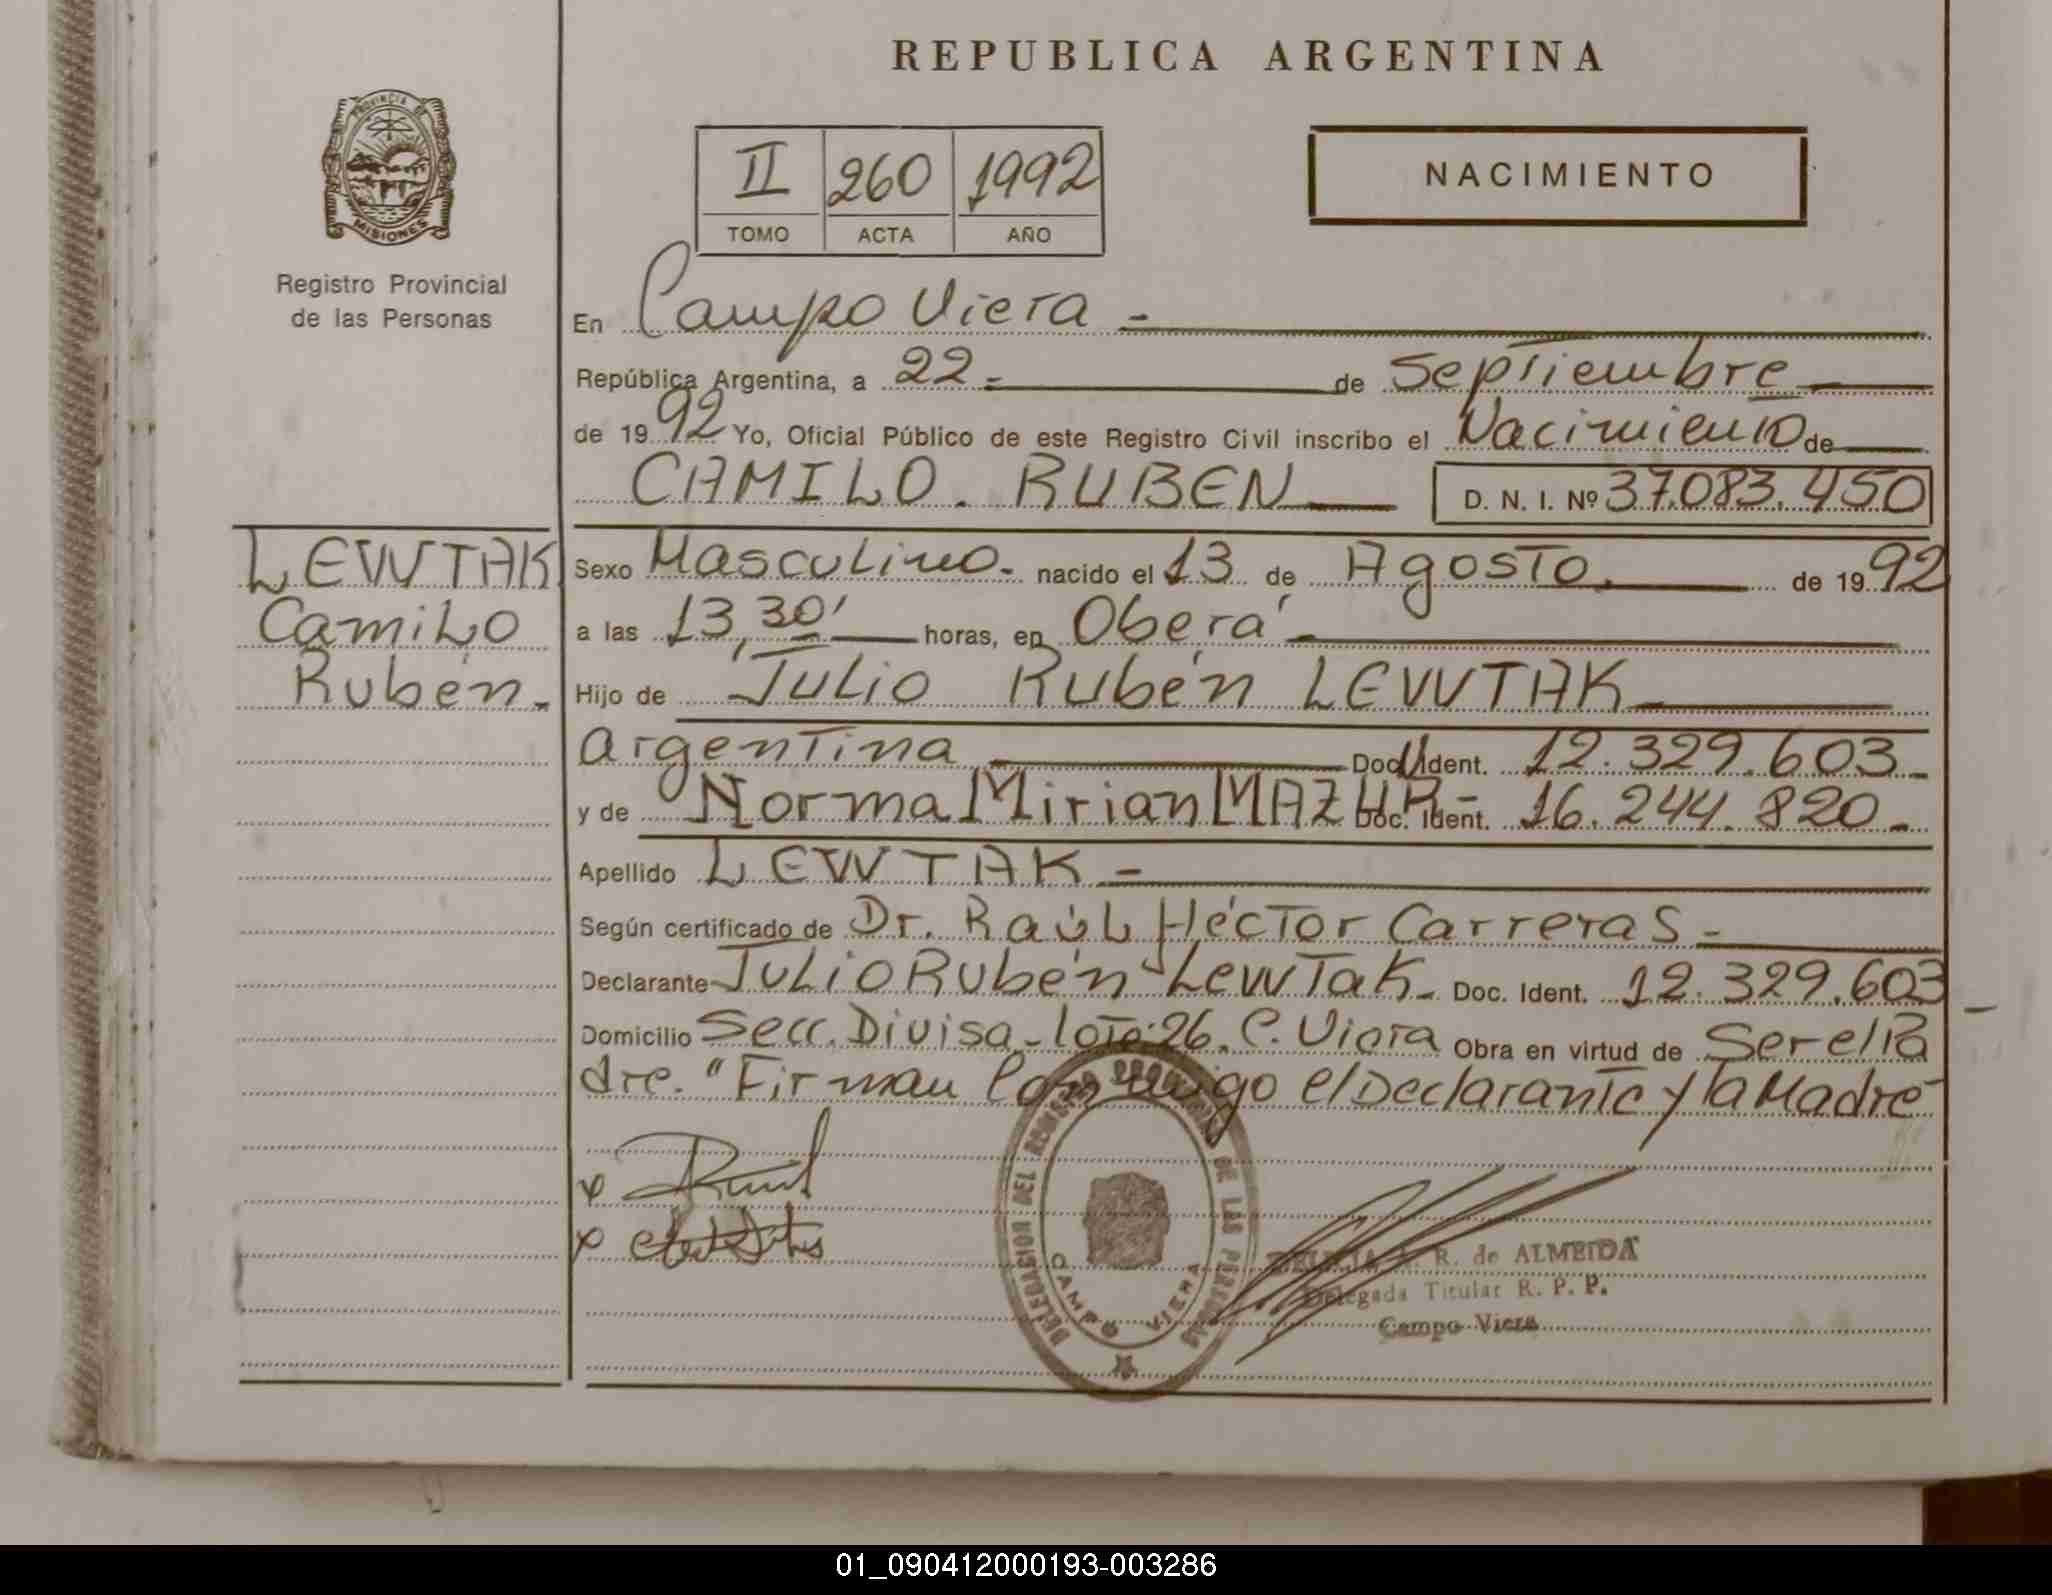 REPUBLICA ARGENTINA
PROVINCIA DE
MISIONES
Registro Provincial
de las Personas
II 260 1992
TOMO ACTA AÑO
NACIMIENTO
En Campo Viera -
República Argentina, a 22 - de Septiembre
de 1992 Yo, Oficial Público de este Registro Civil inscribo el Nacimiento de
CAMILO. RUBEN D. N. I. Nº 37.083.450
LEWTAK
Camilo
Rubén.-
Sexo Masculino.- nacido el 13 de Agosto. de 1992
a las 13,30' horas, en Oberá -
Hijo de Julio Rubén LEWTAK
argentina Doc. Ident. 12.329.603 -
y de Norma Mirian MAZUR.- Doc. Ident. 16.244.820 -
Apellido LEWTAK -
Según certificado de Dr. Raúl Héctor Carreras -
Declarante Julio Rubén Lewtak. Doc. Ident. 12.329.603 -
Domicilio Secc. Divisa - lote 26. C. Viera Obra en virtud de Ser el Pa
dre. "Firman Conmigo el Declarante y la Madre
x
x
DELEGACION DEL REGISTRO PROVINCIAL DE LAS PERSONAS
CAMPO VIERA
R. de ALMEIDA
Delegada Titular R. P. P.
Campo Viera
01_090412000193-003286